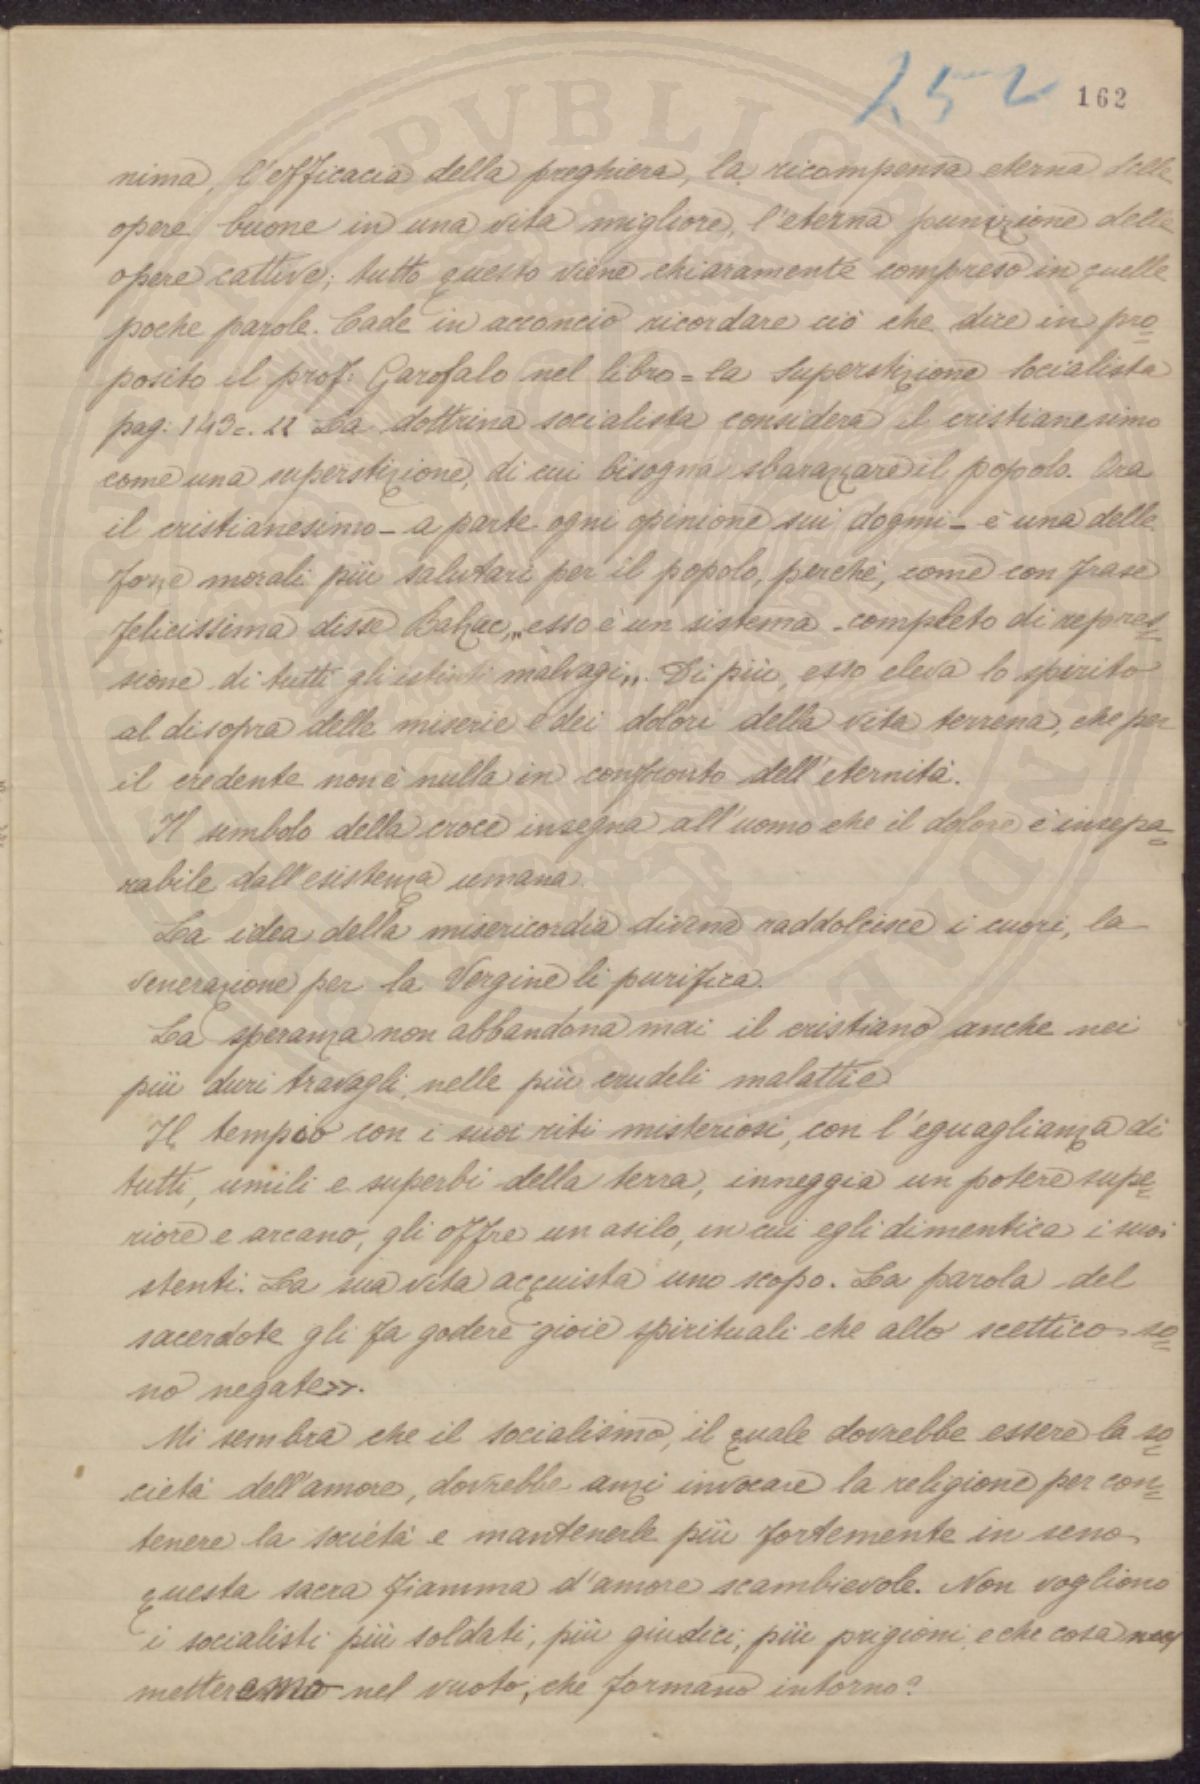 252 162
nima, l'efficacia della preghiera, la ricompensa eterna delle
opere buone in una vita migliore, l'eterna punizione delle
opere cattive; tutto questo viene chiaramente compreso in quelle
poche parole. Cade in acconcio ricordare ciò che dice in pro=
posito il prof: Garofalo nel libro = la Superstizione Socialista
pag: 143 =. "La dottrina socialista considera il cristianesimo
come una superstizione, di cui bisogna sbarazzare il popolo. Ora
il cristianesimo - a parte ogni opinione sui dogmi - è una delle
forze morali più salutari per il popolo, perché, come con frase
felicissima disse Balzac, „esso è un sistema completo di repres=
sione di tutti gli istinti malvagi„. Di più, esso eleva lo spirito
al disopra delle miserie e dei dolori della vita terrena, che per
il credente non è nulla in confronto dell'eternità.
Il simbolo della croce insegna all'uomo che il dolore è insepa=
rabile dall'esistenza umana.
La idea della misericordia divina raddolcisce i cuori, la
venerazione per la Vergine li purifica.
La speranza non abbandona mai il cristiano anche nei
più duri travagli, nelle più crudeli malattie
Il tempio con i suoi riti misteriosi, con l'eguaglianza di
tutti, umili e superbi della terra, inneggia un potere supe=
riore e arcano, gli offre un asilo, in cui egli dimentica i suoi
stenti. La sua vita acquista uno scopo. La parola del
sacerdote gli fa godere gioie spirituali che allo scettico so=
no negate».
Mi sembra che il socialismo, il quale dovrebbe essere la so=
cietà dell'amore, dovrebbe anzi invocare la religione per con=
tenere la società e mantenerle più fortemente in seno
questa sacra fiamma d'amore scambievole. Non vogliono
i socialisti più soldati, più giudici, più prigioni, e che cosa
metteranno nel vuoto, che formano intorno?